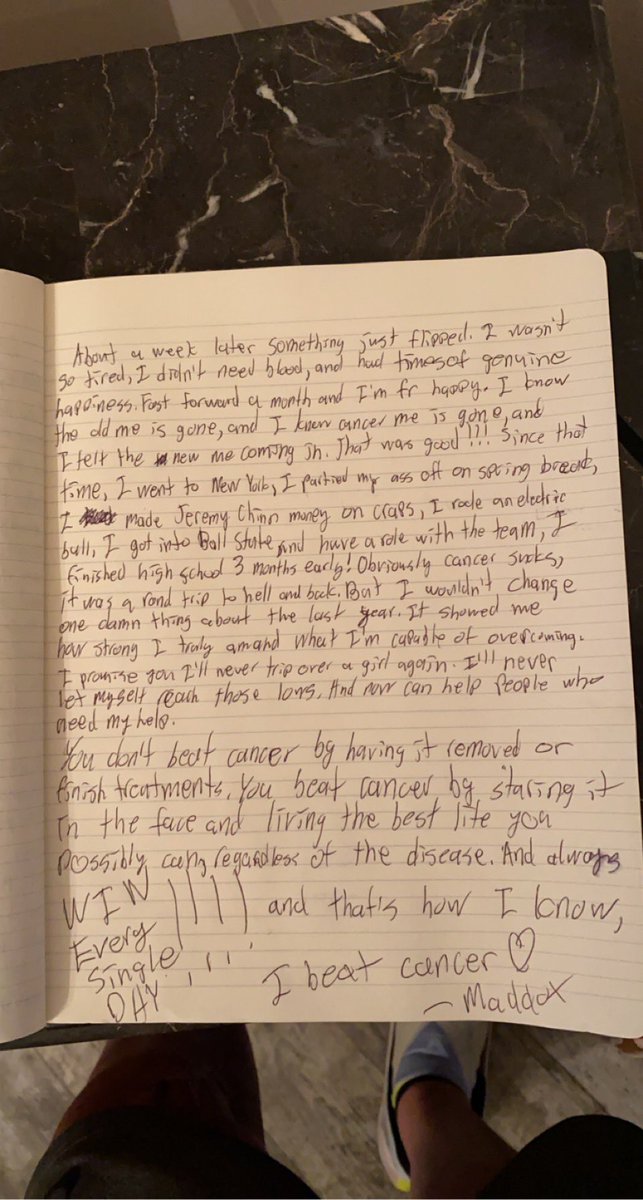 About a week later something just flipped. I wasn't
so tired, I didn't need blood, and had times of genuine
happiness. Fast forward a month and I'm fr happy. I know
the old me is gone, and I know cancer me is gone, and
I felt the new me coming in. That was good!!! Since that
time, I went to New York, I partied my ass off on spring break,
I made Jeremy Chinn money on craps, I rode an electric
bull, I got into Ball State, and have a role with the team, I
finished high school 3 months early! Obviously cancer sucks,
it was a rond trip to hell and back. But I wouldn't change
one damn thing about the last year. It showed me
how strong I truly am and what I'm capable of overcoming.
I promise you I'll never trip over a girl again. I'll never
let myself reach those lows. And now can help people who
need my help.
You don't beat cancer by having it removed or
finish treatments. You beat cancer by staring it
in the face and living the best life you
possibly can, regardless of the disease. And always
WIN !!!! and that's how I know,
Every
Single
DAY!!!!
I beat cancer ♡
- Maddox